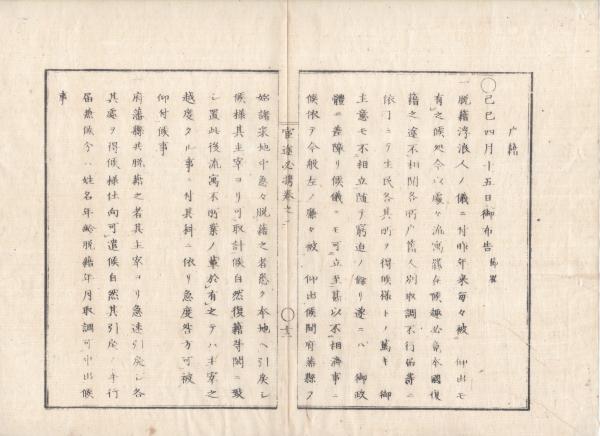 戸籍
○己巳四月十五日御布告
一脱籍浮浪人ノ儀ニ付昨年来毎々被 仰出モ
有之候処今以處々流寓罷在候趣必竟本國復
籍之途不相開各所戸籍人別取調不行届故ニ
依リ ニテ生民各其所ヲ得候様トノ 御
主意モ不相立随テ窮迫ノ餘リ遂ニハ 御政
體ニ差障リ候儀ニモ可立至甚以不相濟事ニ
候依テ今般左ノ廉々被 仰出候間府藩縣ヲ
官途必携巻之
始諸家地中急々脱籍之者悉ク本地ヘ引戻シ
候様其主宰ヨリ可取計候自然復籍等閑ニ致
シ置此後流寓不所業ノ輩於有之テハ主宰之
越度タル事ニ付其科ニ依リ急度咎方可被
仰付候事
一府藩縣共脱籍之者其主宰ヨリ急速引戻シ各
其處ヲ得候様仕向可遣候自然其引戻シ 行
届兼候分ハ姓名年齢脱籍年月取調可申出候
事